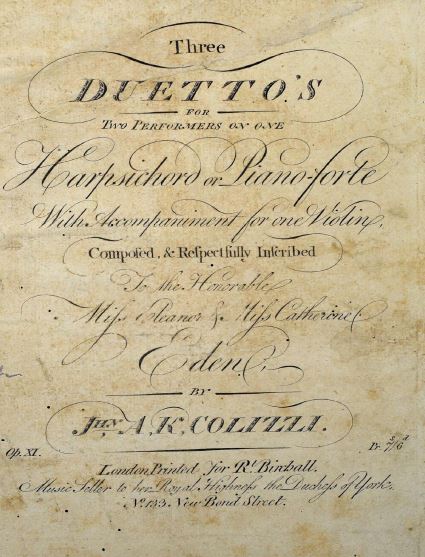 Three
DUETTO'S
FOR
TWO PERFORMERS ON ONE
Harpsichord or Piano-forte
With Accompaniment for one Violin,
Composed, & Respectfully Inscribed
To the Honorable
Miss Eleanor & Miss Catherine
Eden,
BY
JHN. A. K. COLIZZI.
Op. XI.
Pr. 7s/6d
London Printed for Rt. Birchall.
Music Seller to her Royal Highness the Duchess of York,
No. 133. New Bond Street.